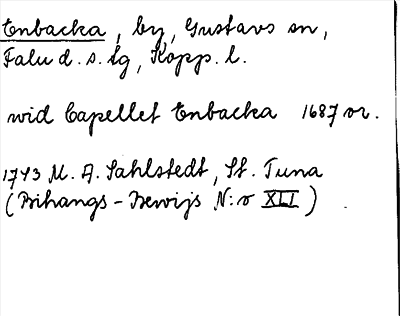 Enbacka, by, Gustavs sn,
Falu d. s. lg, Kopp. l.
wid Capellet Enbacka 1687 or.
1743 M. A. Sahlstedt, St. Tuna
(Bihangs-Bewijs N:o XLI)